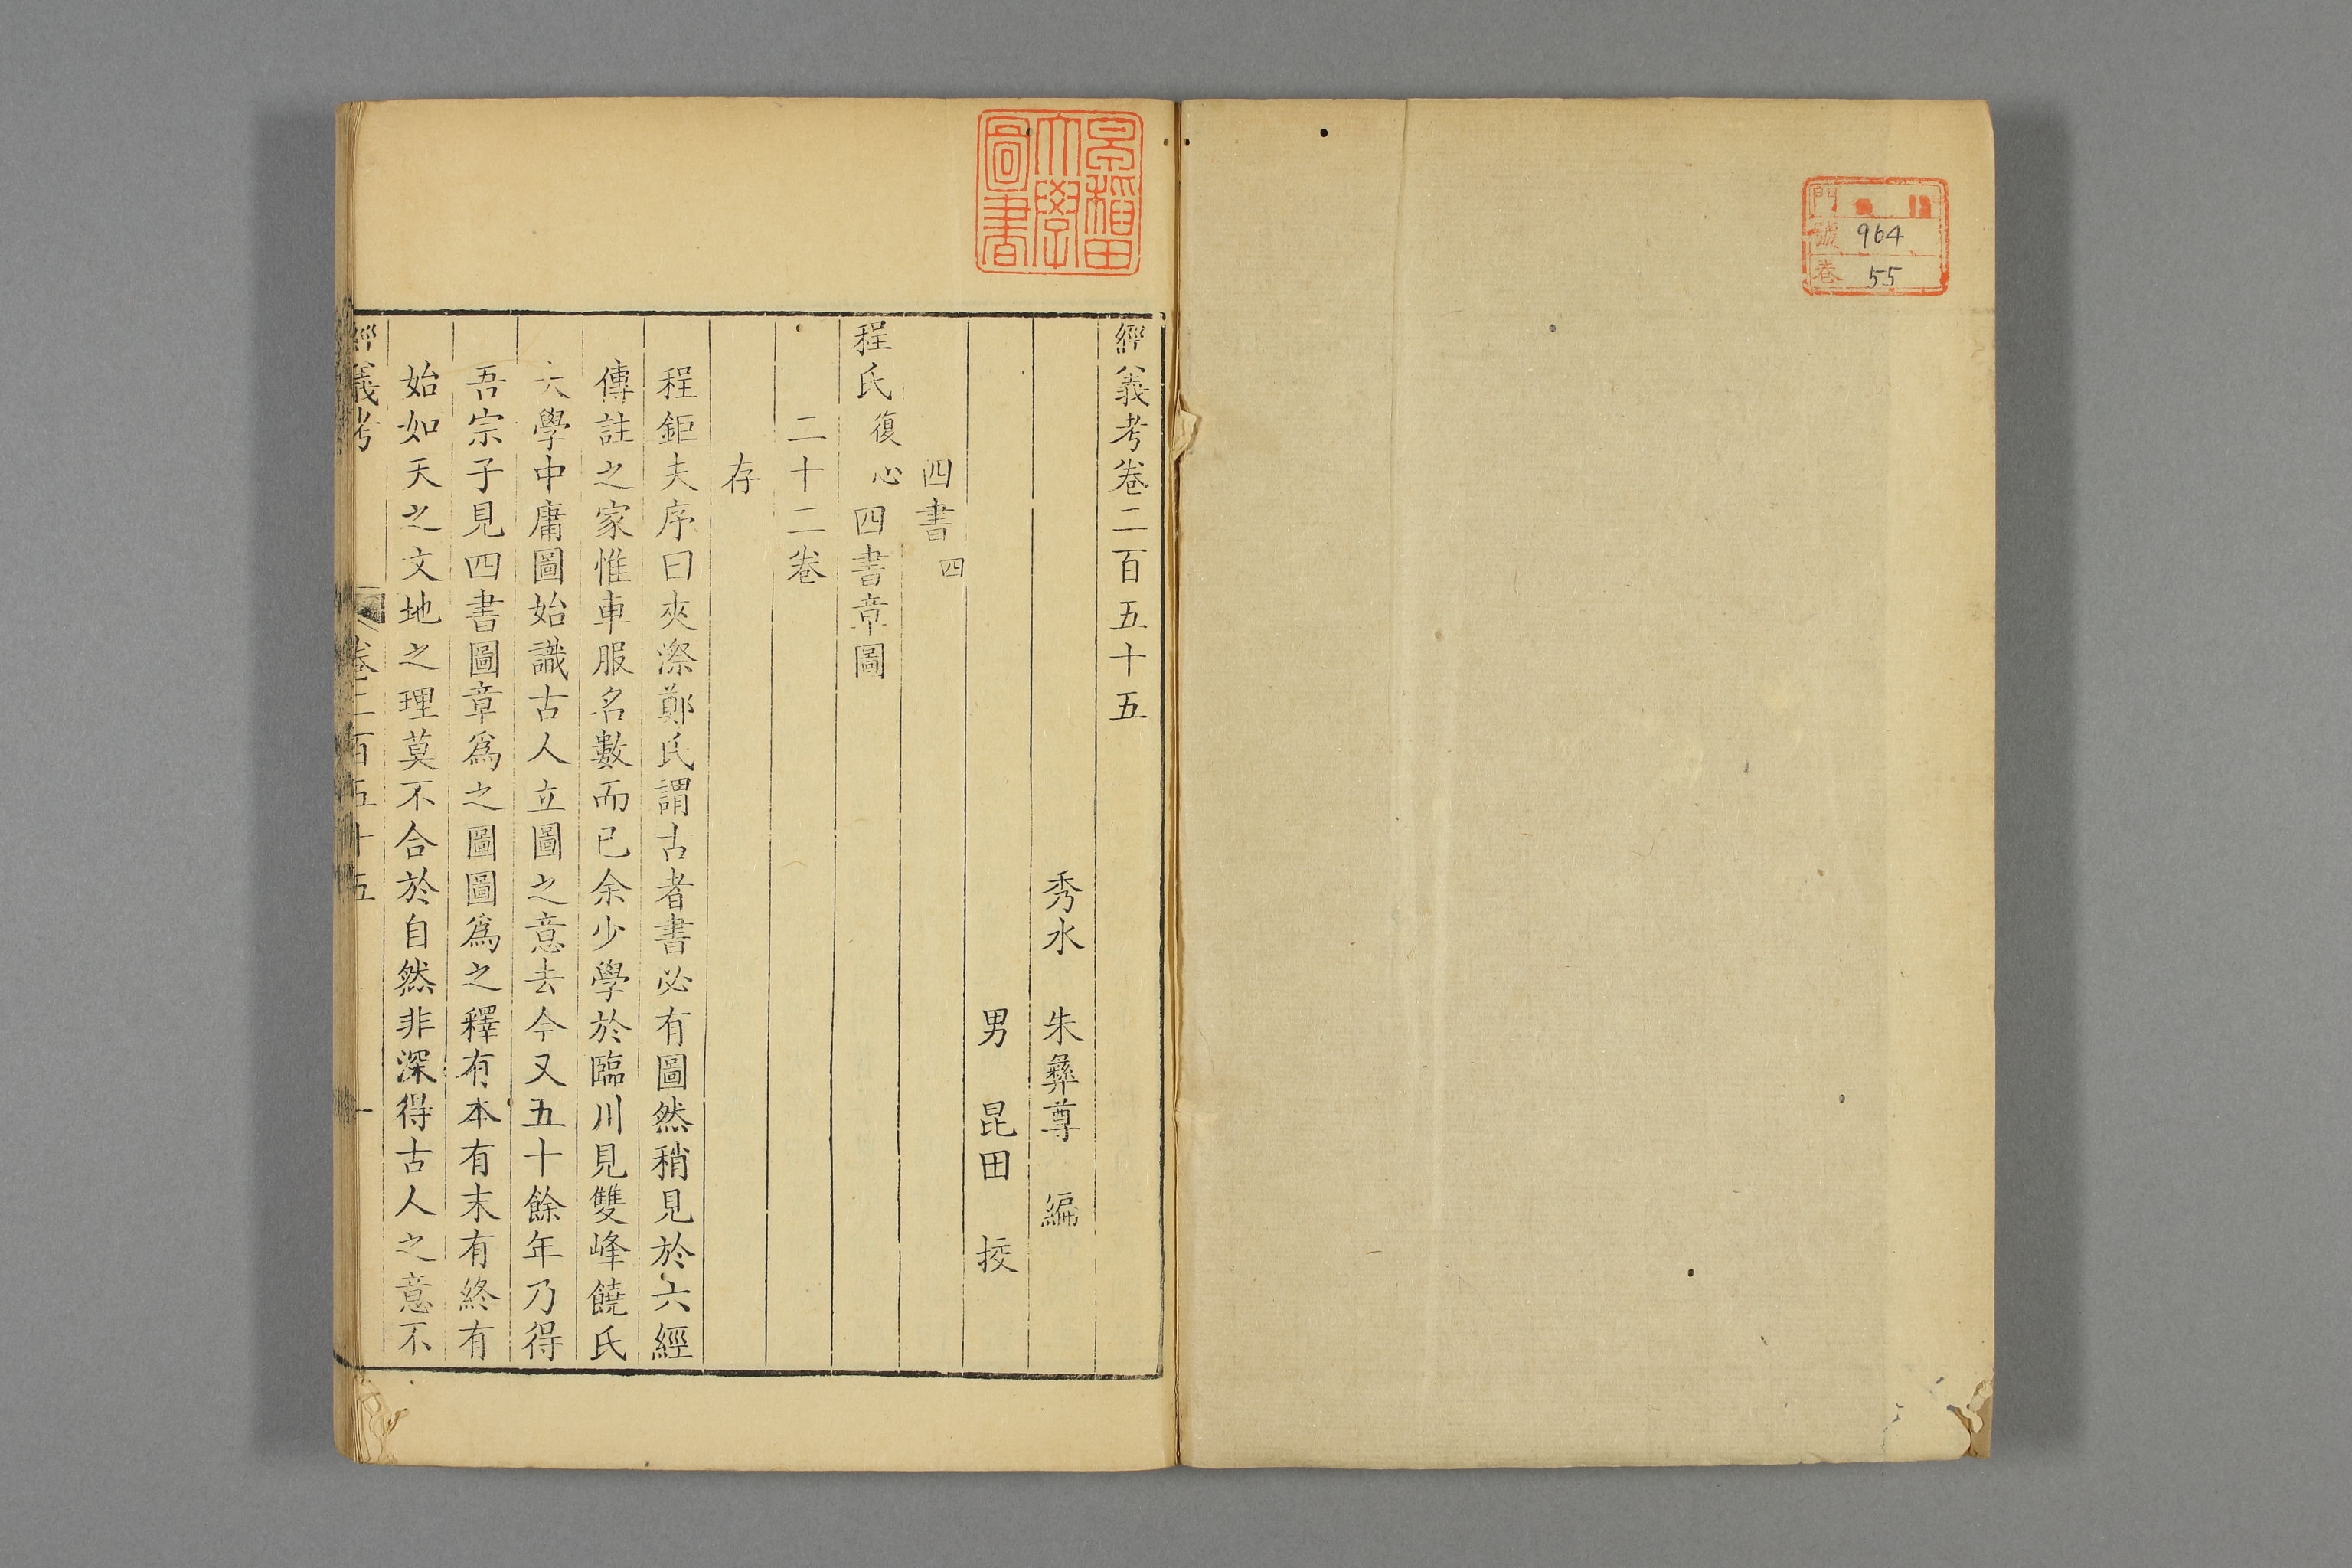 門
號 964
卷 55
早稻田
大學
圖書
經義考卷二百五十五
秀水 朱彝尊 編
男 昆田 挍
四書 四
程氏 復心 四書章圖
二十二卷
存
程鉅夫序曰夾漈鄭氏謂古者書必有圖然稍見於六經
傳註之家惟車服名數而已余少學於臨川見雙峰饒氏
大學中庸圖始識古人立圖之意去今又五十餘年乃得
吾宗子見四書圖章爲之圖圖爲之釋有本有末有終有
始如天之文地之理莫不合於自然非深得古人之意不
經義考 卷二百五十五 一